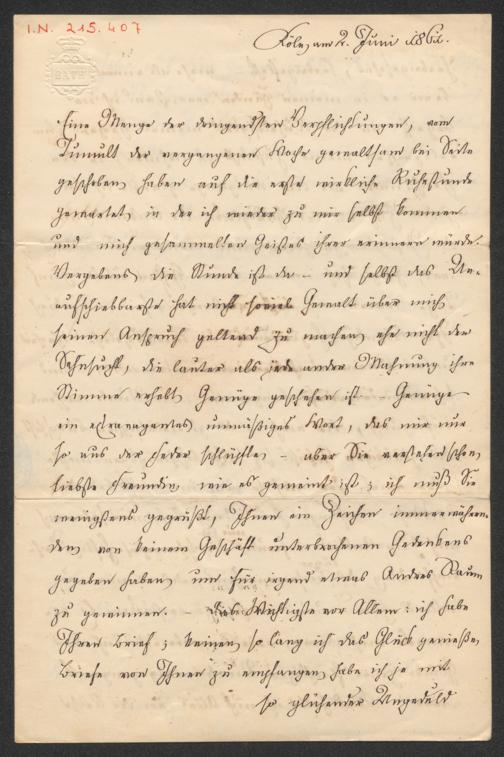 I.N. 215.407
BATH
Köln, am 2. Juni 1861.
Eine Menge der dringendsten Verpflichtungen, vom
Tumult der vergangenen Woche gewaltsam bei Seite
geschoben, haben auf die erste wirkliche Ruhestunde
gewartet, in der ich wieder zu mir selbst kommen
und mich gesammelten Geistes ihrer erinnern würde.
Vergebens, die Stunde ist da – und selbst das Un-
aufschiebbarste hat nicht soviel Gewalt über mich,
seinen Anspruch geltend zu machen, ehe nicht der
Sehnsucht, die lauter als jede andere Mahnung ihre
Stimme erhebt Genüge geschehen ist – Genüge –
ein extravagantes unmäßiges Wort, das mir nur
so aus der Feder schlüpfte, – aber Sie verstehen schon,
liebste Freundin, wie es gemeint ist; ich muß Sie
wenigstens gegrüßt, Ihnen ein Zeichen immerwähren-
den, von keinem Geschäft unterbrochenen Gedenkens
gegeben haben, um für irgend etwas Andres Raum
zu gewinnen. – Das Wichtigste vor Allem: ich habe
Ihren Brief; keinen, so lang ich das Glück genieße,
Briefe von Ihnen zu empfangen, habe ich je mit
so glühender Ungeduld